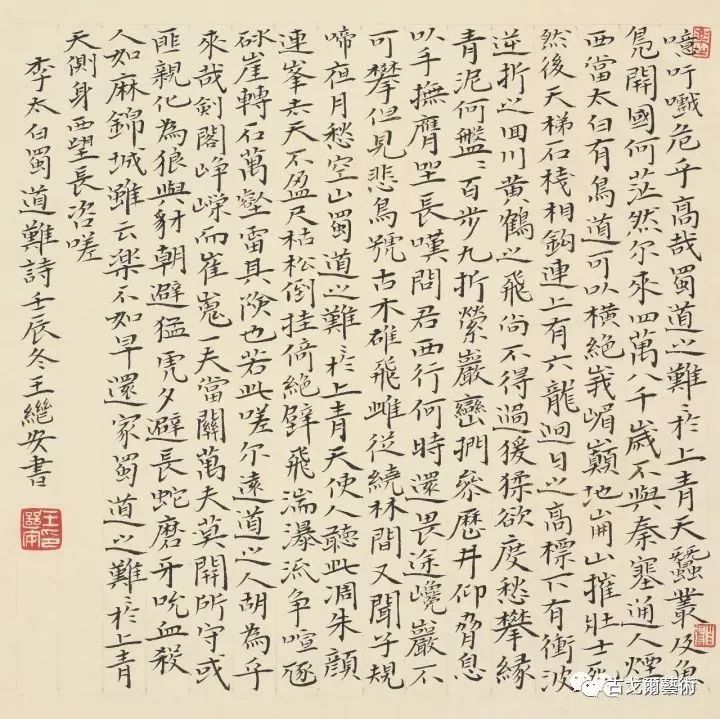 噫吁嚱危乎高哉蜀道之難〻於上青天蠶叢及魚
鳧開國何茫然尔來四萬八千歲不與秦塞通人煙
西當太白有鳥道可以橫絶峩嵋巔地崩山摧壯士死
然後天梯石棧相鈎連上有六龍迴日之高標下有衝波
逆折之回川黄鶴之飛尚不得過猨猱欲度愁攀緣
青泥何盤〻百步九折縈巖巒捫參歷井仰脅息
以手撫膺坐長嘆問君西行何時還畏途巉巖不
可攀但見悲鳥號古木雄飛雌從繞林間又聞子規
啼夜月愁空山蜀道之難〻於上青天使人聽此凋朱顔
連峯去天不盈尺枯松倒挂倚絶壁飛湍瀑流争喧豗
砯崖轉石萬壑雷其險也若此嗟尔遠道之人胡為乎
來哉劍閣崢嶸而崔嵬一夫當關萬夫莫開所守或
匪親化為狼與豺朝避猛虎夕避長蛇磨牙吮血殺
人如麻錦城雖云樂不如早還家蜀道之難〻於上青
天側身西望長咨嗟
李太白蜀道難詩壬辰冬王繼安書
古戈爾藝術